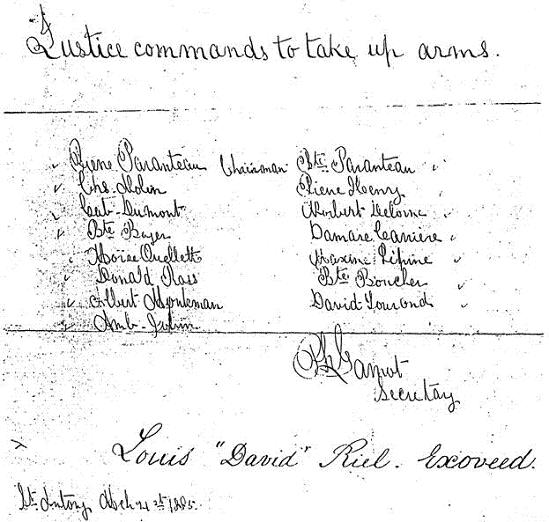 Justice commands to take up arms.
Pierre Paranteau Chairman Bte. Paranteau
Chs. Nolin Pierre Henry
Gab. Dumont Norbert Delorme
Bte Boyer Damase Carriere
Moïse Ouellette Maxime Lépine
Donald Ross Bte Boucher
Albert Monkman David Tourond
Amb. Jobin
Ph. Garnot
Secretary
Louis "David" Riel. Exoveed.
St. Antony March 21st 1885.